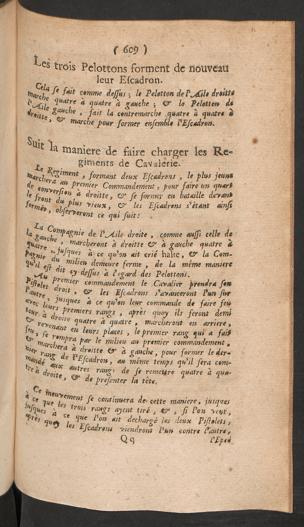 ( 609 )
Les trois Pelottons forment de nouveau
leur Escadron.
Cela se fait comme dessus ; le Pelotton de l'Aile droitte
marche quatre à quatre à gauche ; & le Pelotton de
l'Aile gauche, fait la contremarche quatre à quatre à
droitte, & marche pour former ensemble l'Escadron.
Suit la maniere de faire charger les Re-
giments de Cavalerie.
Le Regiment, formant deux Escadrons, le plus jeune
marchera au premier Commandement, pour faire un quart
de conversion à droitte, & se former en bataille devant
le front du plus vieux, & les Escadrons s'étant ainsi
formés, observeront ce qui suit.
La Compagnie de l'Aile droite, comme aussi celle de
la gauche, marcheront à droitte & à gauche quatre à
quatre, jusques à ce qu'on ait crié halte, & la Com-
pagnie du milieu demeure ferme, de la même maniere
qu'il est dit cy-dessus à l'egard des Pelottons.
Au premier commandement le Cavalier prendra son
Pistolet droit, & les Escadrons s'avanceront l'un sur
l'autre, jusques à ce qu'on leur commande de faire feu
avec leurs premiers rangs, après quoy ils feront demi
tour à droite quatre à quatre, marcheront en arriere,
& revenant en leurs places, le premier rang qui a fait
feu, se rompra par le milieu au premier commandement,
& marchera à droitte & à gauche, pour former le der-
nier rang de l'Escadron, au même temps qu'il sera com-
mandé aux autres rangs de se remettre quatre à qua-
tre à droite, & de presenter la tête.
Ce mouvement se continuera de cette maniere, jusques
à ce que les trois rangs ayent tiré, & , si l'on veut,
jusques à ce que l'on ait dechargé les deux Pistolets,
après quoy les Escadrons viendront l'un contre l'autre,
Qq l'Epée